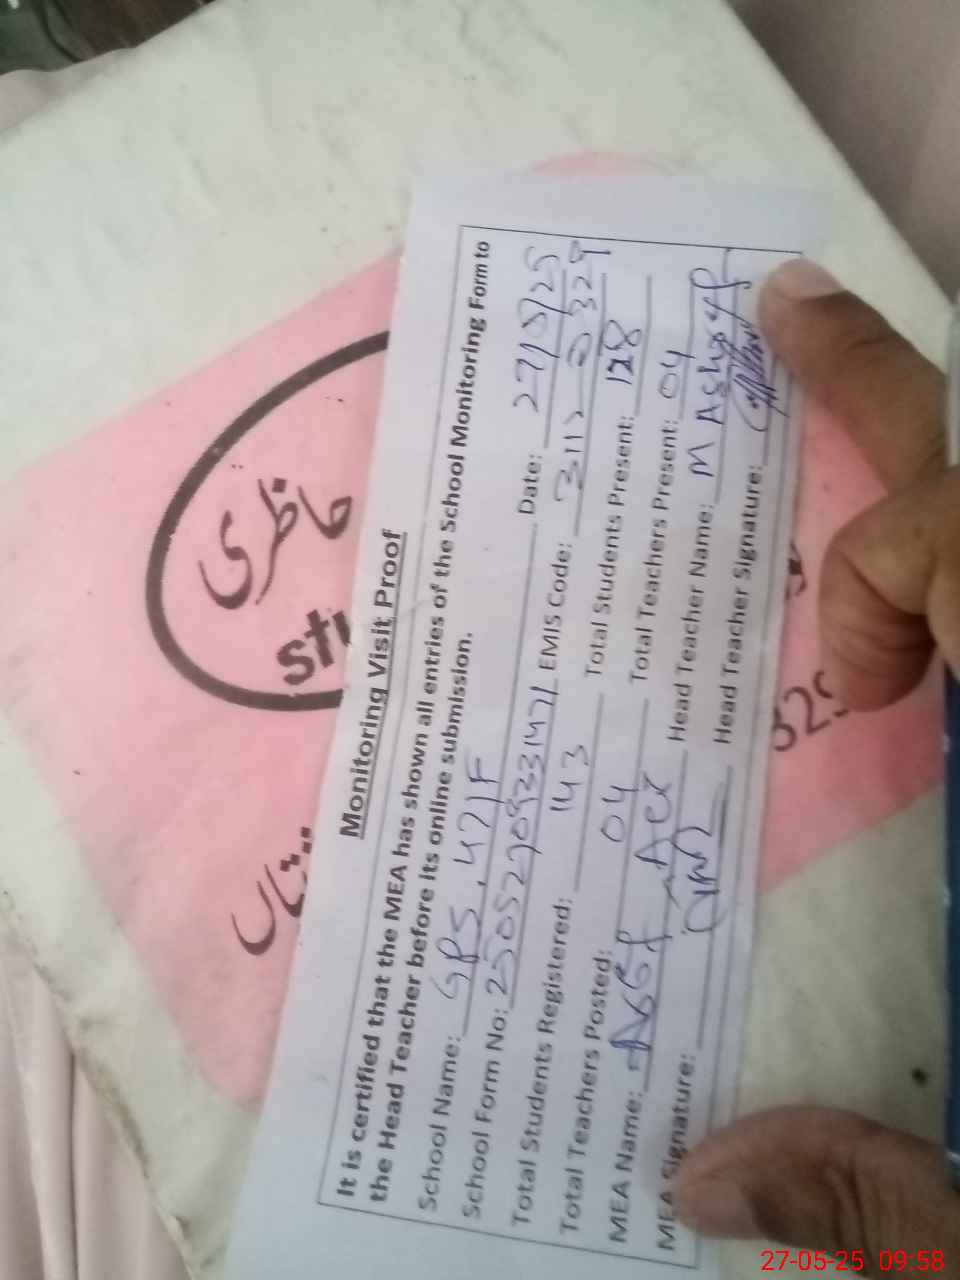 Monitoring Visit Proof
It is certified that the MEA has shown all entries of the School Monitoring Form to
the Head Teacher before its online submission.
School Name: GPS, 47/F Date: 27/5/25
School Form No: EMIS Code:
Total Students Registered: 143 Total Students Present: 128
Total Teachers Posted: 04 Total Teachers Present: 04
MEA Name: Head Teacher Name: M Ashraf
MEA Signature: Head Teacher Signature:
حاظری
325
27-05-25 09:58